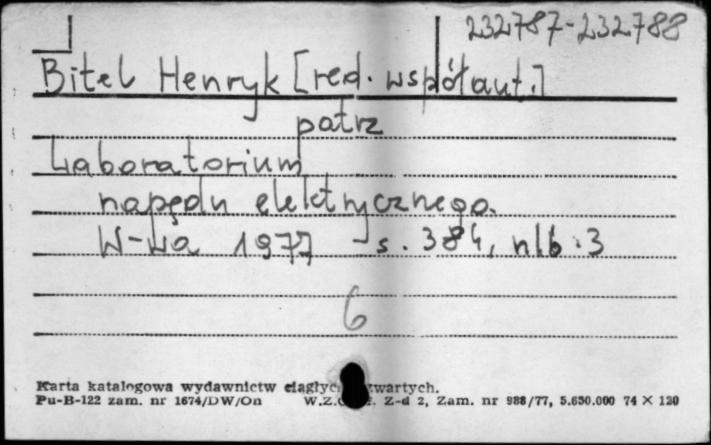 232787-232788
Bitel Henryk [red. współaut.]
patrz
Laboratorium
napędu elektrycznego.
W-wa 1977 s. 384, nlb. 3
6
Karta katalogowa wydawnictw zwartych.
Pu-B-122 zam. nr 1674/DW/On Z-d 2, Zam. nr 988/77, 5.650.000 74 X 120